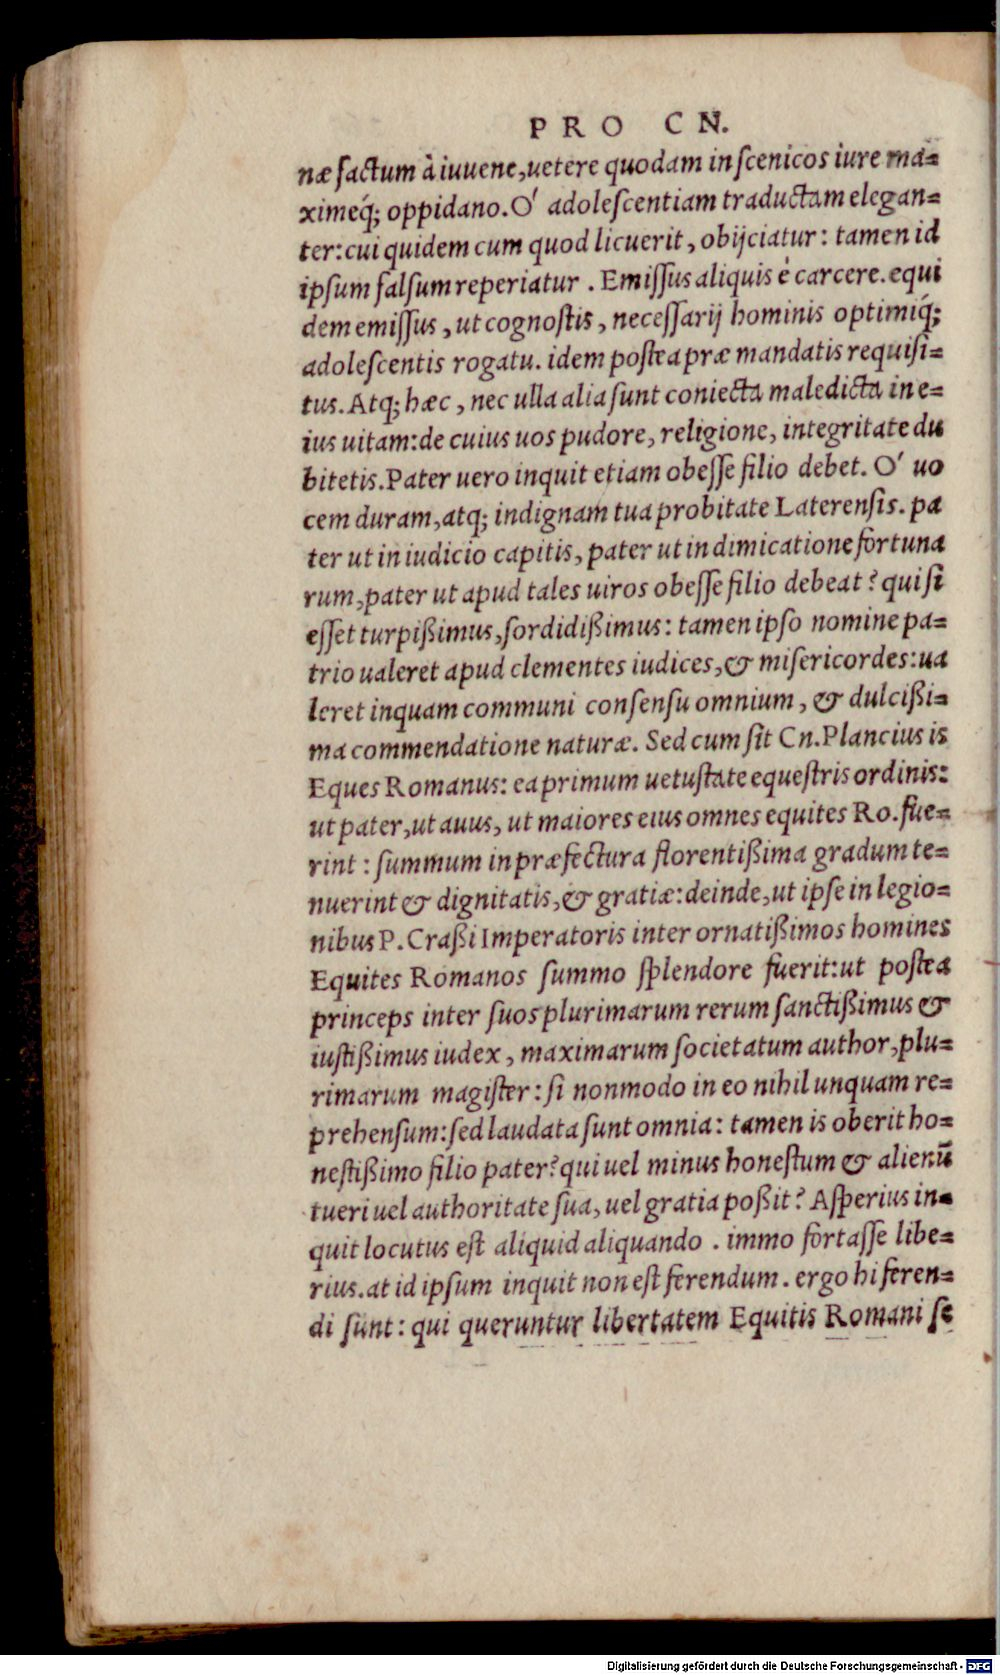 PRO CN.
næ factum à iuuene, uetere quodam in scenicos iure ma=
ximeq́; oppidano. O' adolescentiam traductam elegan=
ter: cui quidem cum quod licuerit, obijciatur: tamen id
ipsum falsum reperiatur . Emissus aliquis è carcere. equi
dem emissus, ut cognostis, necessarij hominis optimiq́;
adolescentis rogatu. idem postea præ mandatis requisi=
tus. Atq; hæc, nec ulla alia sunt coniecta maledicta in e=
ius uitam: de cuius uos pudore, religione, integritate du
bitetis. Pater uero inquit etiam obesse filio debet. O' uo
cem duram, atq; indignam tua probitate Laterensis. pa
ter ut in iudicio capitis, pater ut in dimicatione fortuna
rum, pater ut apud tales uiros obesse filio debeat? qui si
esset turpißimus, sordidißimus: tamen ipso nomine pa=
trio ualeret apud clementes iudices, & misericordes: ua
leret inquam communi consensu omnium, & dulcißi=
ma commendatione naturæ. Sed cum sit Cn. Plancius is
Eques Romanus: ea primum uetustate equestris ordinis:
ut pater, ut auus, ut maiores eius omnes equites Ro. fue=
rint: summum in præfectura florentißima gradum te=
nuerint & dignitatis, & gratiæ: deinde, ut ipse in legio=
nibus P. Craßi Imperatoris inter ornatißimos homines
Equites Romanos summo splendore fuerit: ut postea
princeps inter suos plurimarum rerum sanctißimus &
iustißimus iudex, maximarum societatum author, plu=
rimarum magister: si nonmodo in eo nihil unquam re=
prehensum: sed laudata sunt omnia: tamen is oberit ho=
nestißimo filio pater? qui uel minus honestum & alienū
tueri uel authoritate sua, uel gratia poßit? Asperius in=
quit locutus est aliquid aliquando . immo fortasse libe=
rius. at id ipsum inquit non est ferendum. ergo hi feren=
di sunt: qui queruntur libertatem Equitis Romani se
Digitalisierung gefördert durch die Deutsche Forschungsgemeinschaft - DFG